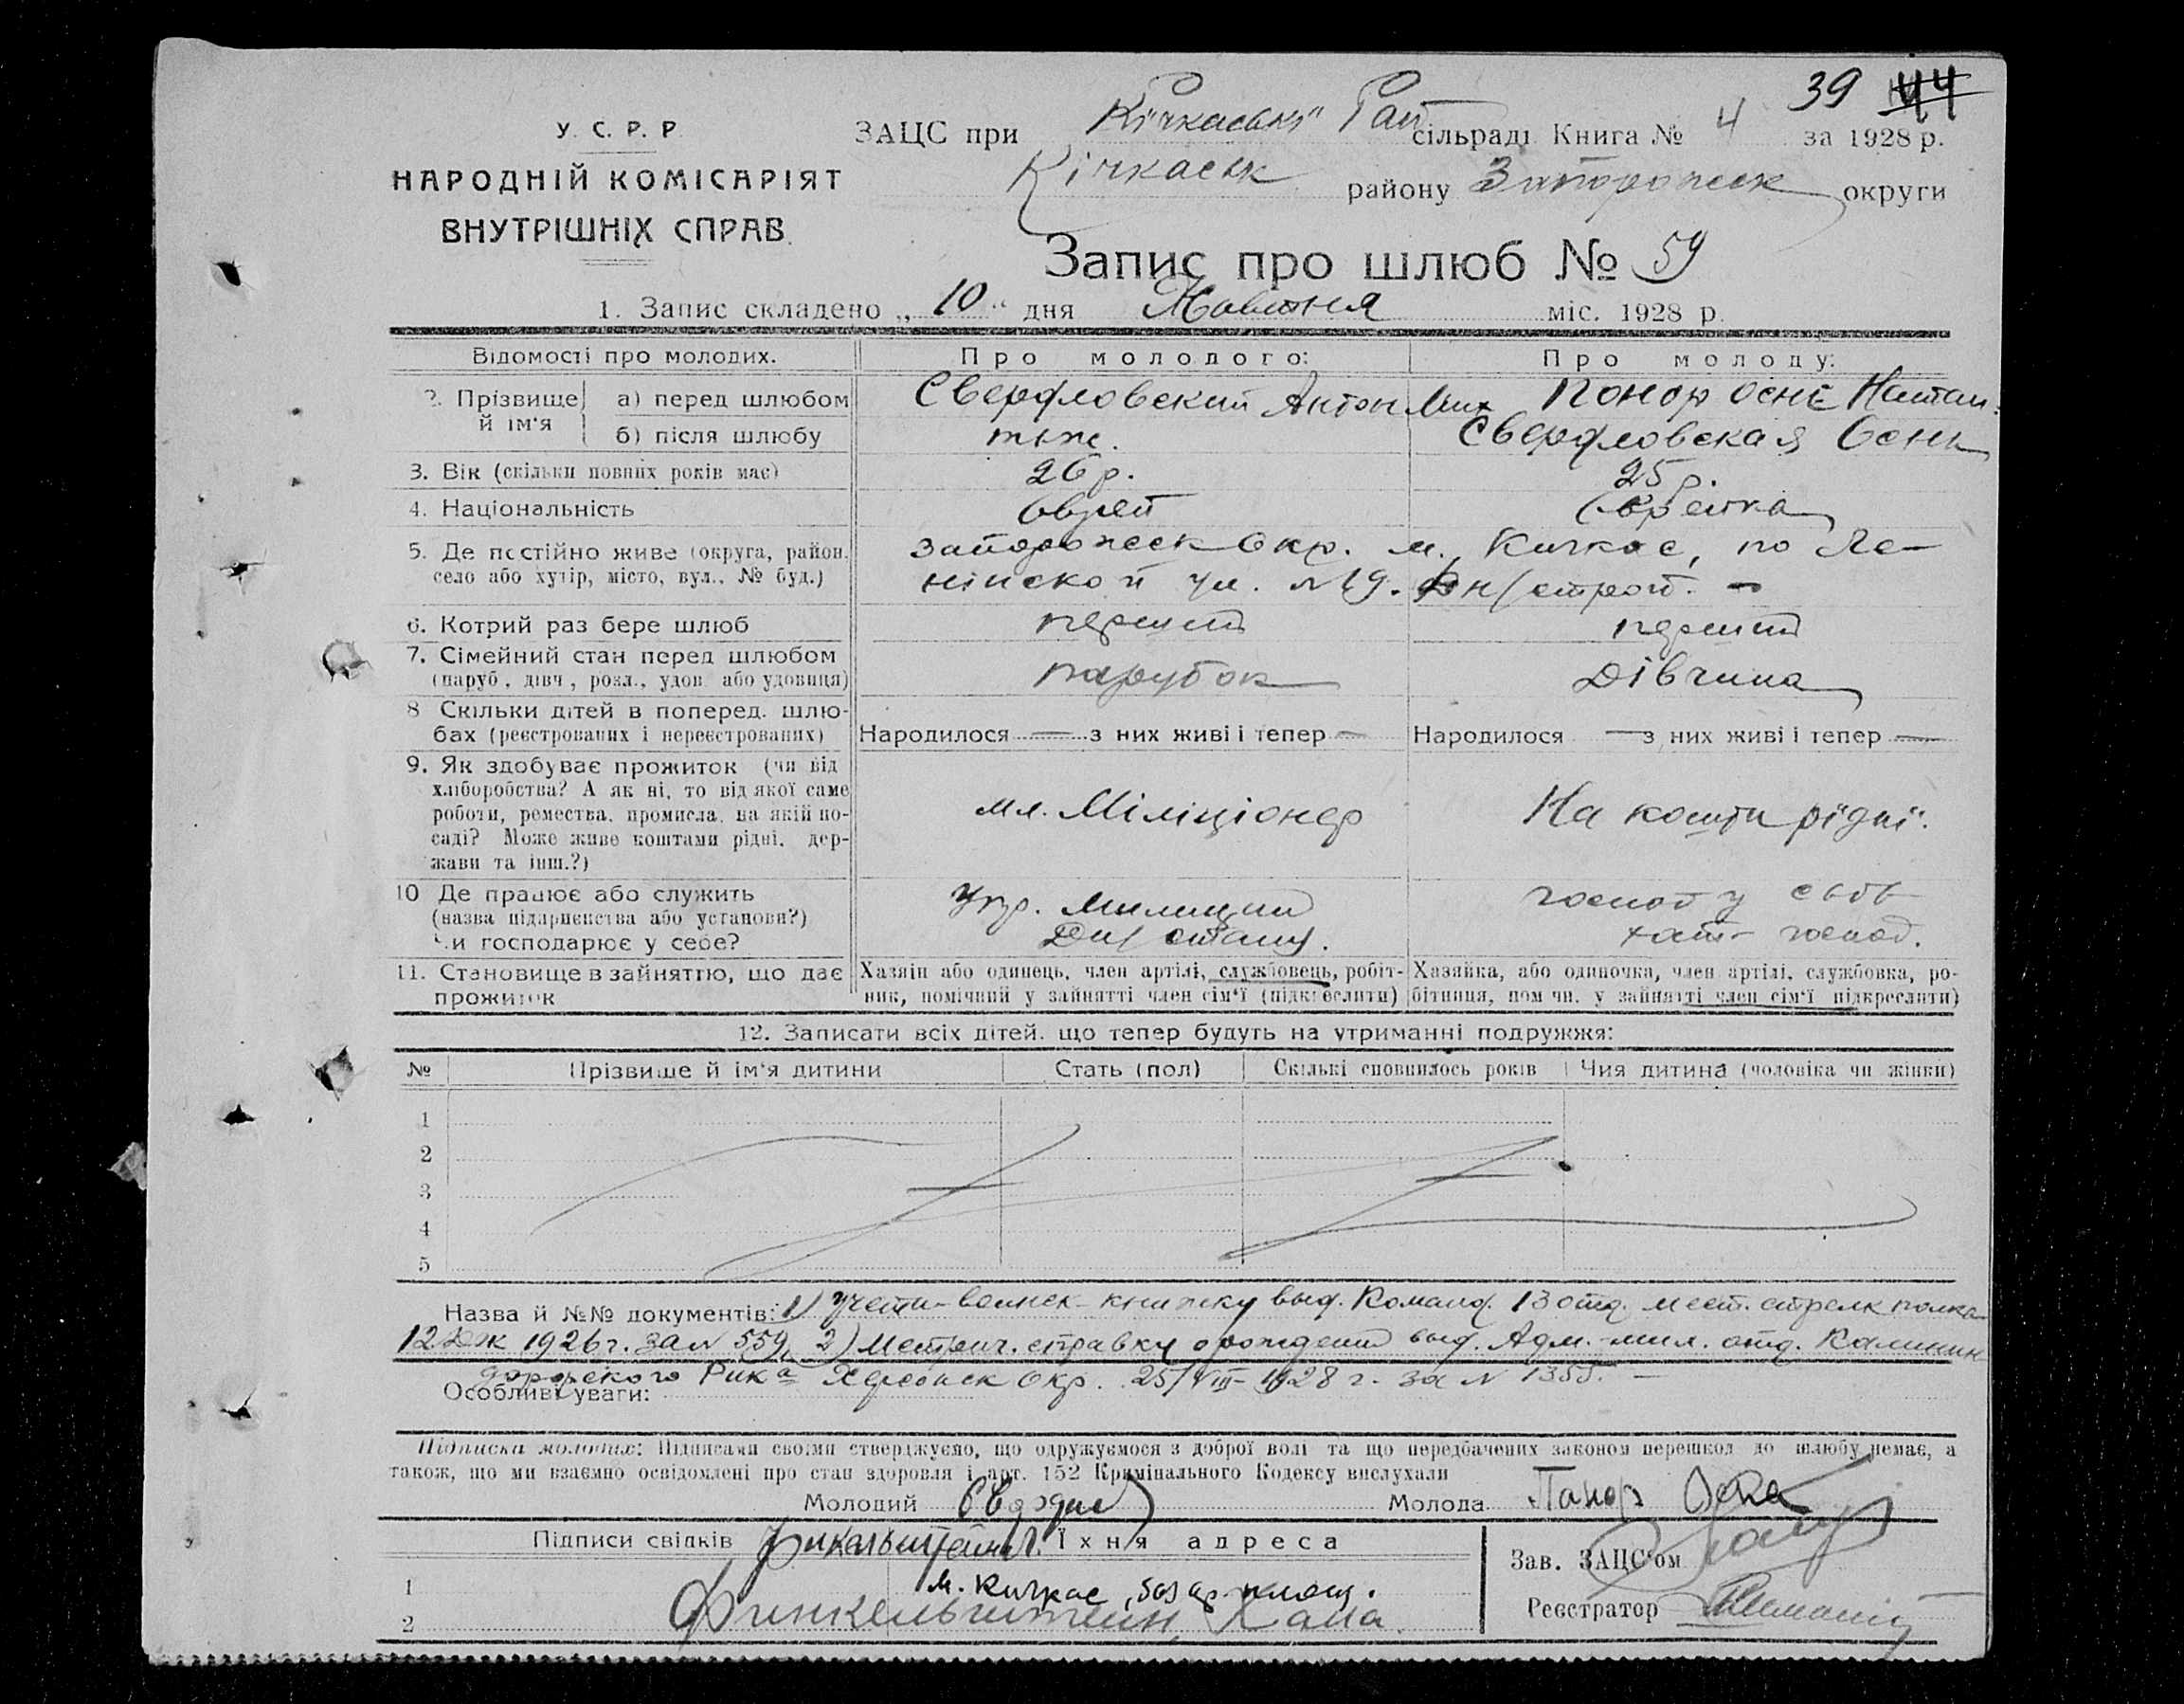 39 44
У. С. Р. Р.
НАРОДНІЙ КОМІСАРІЯТ
ВНУТРІШНІХ СПРАВ.
ЗАЦС при Кічкаські Рай сільраді Книга № 4 за 1928 р.
Кічкаськ району Запорожск округи
Запис про шлюб № 59
1. Запис складено „ 10 “ дня Жовтня міс. 1928 р.
Відомості про молодих. Про молодого: Про молоду:
2. Прізвище й ім'я а) перед шлюбом Свердловский Антон Мих Понор Осне Натан.
б) після шлюбу тыж. Свердловская Осни
3. Вік (скільки повних років має) 26 р. 25 р.
4. Національність Еврей Єврейка
5. Де постійно живе (округа, район, Запорожск Окр. м. Кичкас, по Ле-
село або хутір, місто, вул., № буд.) нінской ул. №19. Дн/строй. —
6. Котрий раз бере шлюб перший перший
7. Сімейний стан перед шлюбом парубок Дівчина
(паруб., дівч., розл., удов. або удовиця)
8 Скільки дітей в поперед. шлю-
бах (реєстрованих і нереєстрованих) Народилося — з них живі і тепер — Народилося — з них живі і тепер —
9. Як здобуває прожиток (чи від
хліборобства? А як ні, то від якої саме
роботи, ремества, промисла, на якій по- мл. Міліціонер На кошти рідні.
саді? Може живе коштами рідні, дер-
жави та інш.?)
10 Де працює або служить
(назва підприємства або установи?) Упр. Милиции господ у своб
Чи господарює у себе? хат- господ.
11. Становище в зайняттю, що дає Хазяїн або одинець, член артілі, службовець, робіт- Хазяйка, або одиночка, член артілі, службовка, ро-
прожиток ник, помічний у зайнятті член сім'ї (підкреслити) бітниця, помічн. у зайнятті член сім'ї підкреслити)
12. Записати всіх дітей, що тепер будуть на утриманні подружжя:
№ Прізвище й ім'я дитини Стать (пол) Скількі сповнилось років Чия дитина (чоловіка чи жінки)
1
2
3
4
5
Назва й №№ документів: 1) Учетн-воинск. книжку выд. Команд. 13 отд. мест. стрелк полка
12 1926 г. за № 559, 2) Метрич. справку о рождении выд. Адм.-мил. отд. Калинин
дорфского Рика Херсонск Окр. 25/VIII-1928 г. за № 1355. —
Особливі уваги:
Підписка молодих: Підписами своїми стверджуємо, що одружуємося з доброї волі та що передбачених законом перешкод до шлюбу немає, а
також, що ми взаємно освідомлені про стан здоровля і арт. 152 Кримінального Кодексу вислухали
Молодий Молода Панор Осна
Підписи свідків Їхня адреса
1 м. Кичкас, базар площ.
2 Финкельштейн, Хана.
Зав. ЗАЦС'ом
Реєстратор